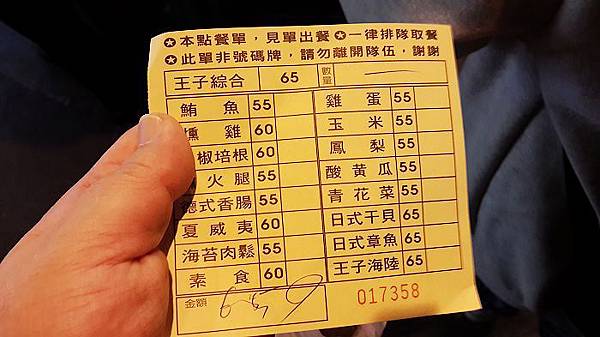 ✪本點餐單，見單出餐 ✪一律排隊取餐
✪此單非號碼牌，請勿離開隊伍，謝謝
王子綜合 65 數量
鮪魚 55 雞蛋 55
燻雞 60 玉米 55
椒培根 60 鳳梨 55
火腿 55 酸黃瓜 55
德式香腸 55 青花菜 55
夏威夷 60 日式干貝 65
海苔肉鬆 55 日式章魚 65
素食 60 王子海陸 65
金額 017358